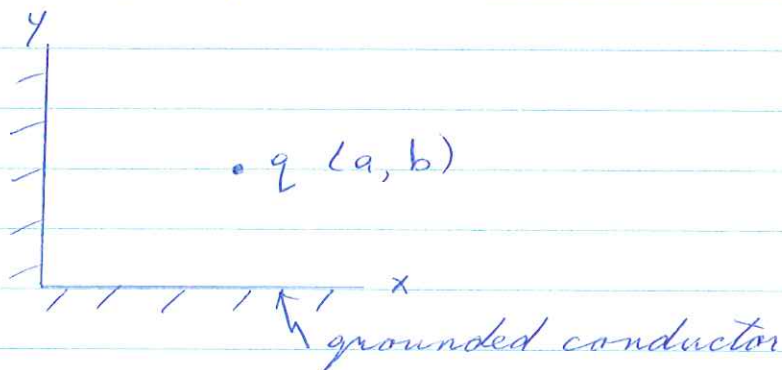 y
q (a, b)
x
grounded conductor